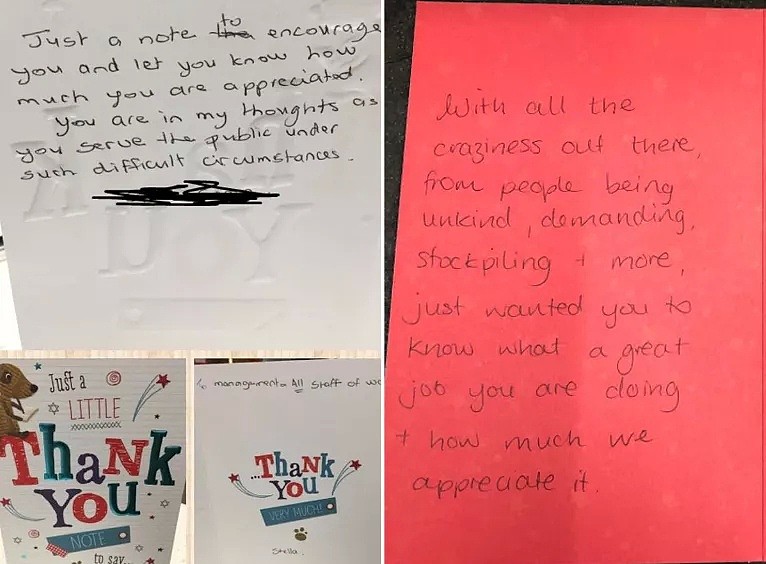 Just a note to encourage
you and let you know how
much you are appreciated.
You are in my thoughts as
you serve the public under
such difficult circumstances.
Just a
LITTLE
Thank
You
NOTE
to say...
To management & All staff of
...Thank
You
VERY MUCH!
Stella.
With all the
craziness out there,
from people being
unkind, demanding,
stockpiling + more,
just wanted you to
know what a great
job you are doing
+ how much we
appreciate it.